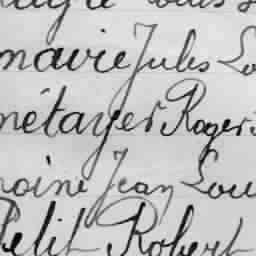 mavie Jules Lo
métayer Roger
moine Jean Lou
Petit Robert